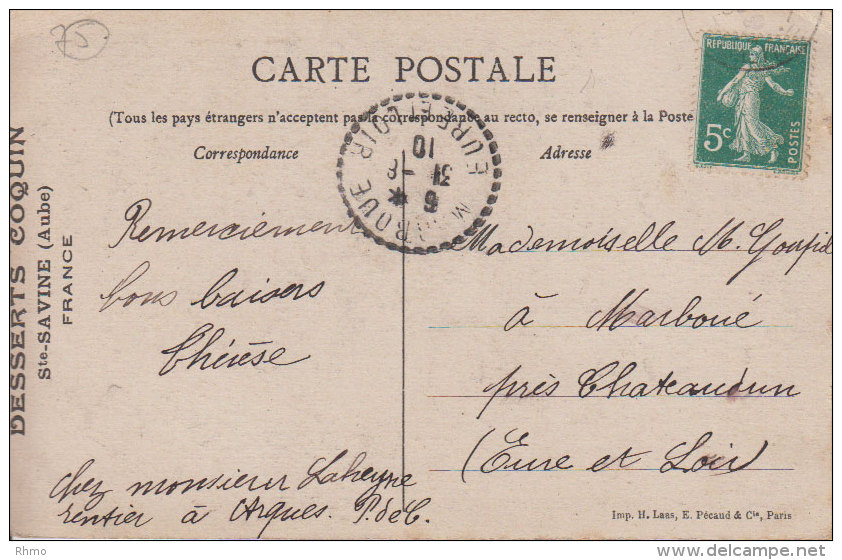 75
CARTE POSTALE
(Tous les pays étrangers n'acceptent pas la correspondance au recto, se renseigner à la Poste
Correspondance
Adresse
REPUBLIQUE FRANÇAISE
5c
POSTES
MARBOUE
EURE ET LOIR
6
31 - 8
10
DESSERTS COQUIN
Ste-SAVINE (Aube)
FRANCE
Remerciement
bons baisers
Thérèse
chez monsieur
rentier à Arques. P. de C.
Mademoiselle M. Goupil
à Marboué
près Chateaudun
(Eure et Loir)
Imp. H. Laas, E. Pécaud & Cie, Paris
Rhmo
© delcampe.net